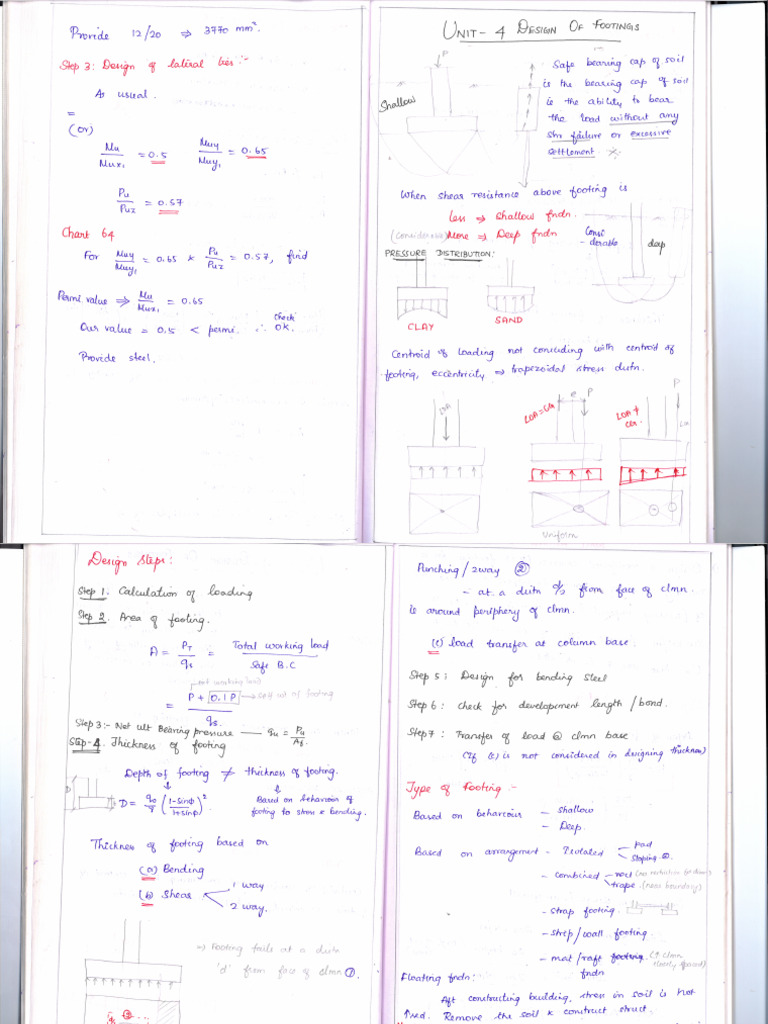 Provide 12/20 ⇒ 3770 mm².
Step 3: Design of lateral ties:-
As usual.
=
(or)
Mu/Mux₁ = 0.5 Muy/Muy₁ = 0.65
Pu/Puz = 0.57
Chart 64
For Muy/Muy₁ = 0.65 & Pu/Puz = 0.57, find
Permi value ⇒ Mu/Mux₁ = 0.65
Our value = 0.5 < permi. ∴ check OK.
Provide steel.
UNIT - 4 DESIGN OF FOOTINGS
P
Shallow
Safe bearing cap of soil
is the bearing cap of soil
ie the ability to bear
the load without any
shr failure or excessive
settlement
When shear resistance above footing is
less ⇒ Shallow fndn.
(considerable) More ⇒ Deep fndn
Consi
-derable
deep
PRESSURE DISTRIBUTION:
CLAY
SAND
Centroid of loading not conciding with centroid of
footing, eccentricity ⇒ trapezoidal stress distn.
LOA
LOA=CG
e
P
LOA ≠
CG.
P
uniform
Design Steps:
Step 1. Calculation of loading
Step 2. Area of footing.
A = PT/qs = Total working load/Safe B.C
net working load
= P + 0.1P/qs → self wt of footing
Step 3:- Net ult Bearing pressure — qu = Pu/Af
Step-4. Thickness of footing
Depth of footing ≠ thickness of footing.
D
D = qo/γ (1-sinφ/1+sinφ)²
Based on behaviour of
footing to stress & bending.
Thickness of footing based on
(a) Bending
(b) Shear
1 way
2 way.
⇒ Footing fails at a distn
'd' from face of clmn ①.
Punching/2way ②
- at a distn d/2 from face of clmn
is around periphery of clmn.
(c) load transfer at column base.
Step 5: Design for bending steel
Step 6: check for development length/bond.
Step 7: Transfer of load @ clmn base
(If (c) is not considered in designing thickness)
Type of Footing :-
Based on behaviour - shallow
- Deep.
Based on arrangement - Isolated
pad
sloping
- combined
rect (no restriction for dimn)
trape. (near boundary)
- strap footing.
- strip/wall footing.
- mat/raft footing. (↑ clmn
closely spaced)
fndn
Floating fndn:
Aft constructing building, stress in soil is not
↑sed. Remove the soil & construct struct.